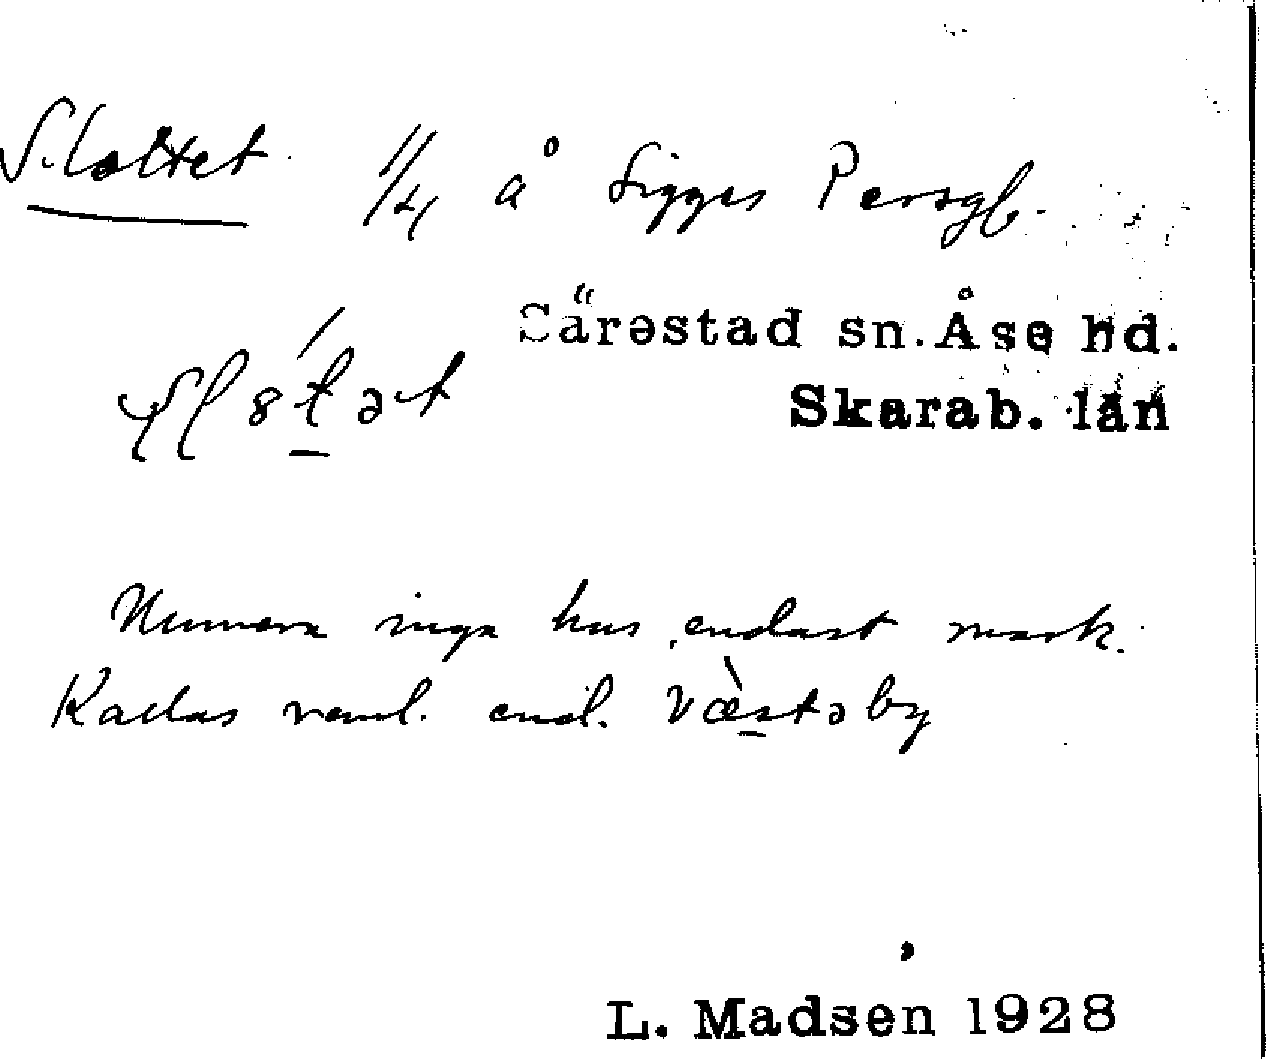 Slottet. 1/4 å Sigges Persgb.
Särəstad sn. Åse hd.
Skarab. län
Numera inga hus, endast mark.
Kallas vanl. end. Væstəby
L. Madsen 1928